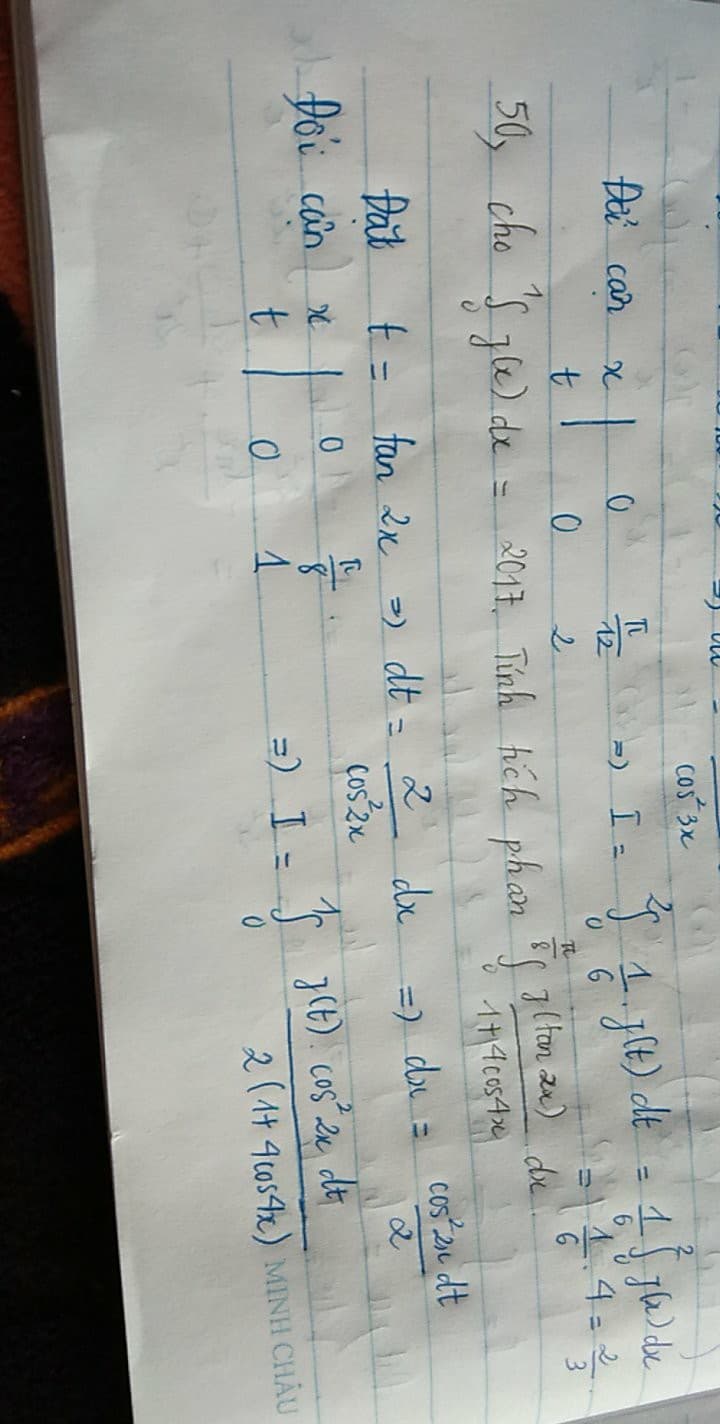 cos² 3x
Đổi cận x | 0 π/12 => I = ∫₀² 1/6 . f(t) dt = 1/6 ∫₀² f(x) dx
t | 0 2 = 1/6 . 4 = 2/3
50, cho ∫₀¹ f(x) dx = 2017. Tính tích phân ∫₀^(π/8) f(tan 2x) / 1+4cos4x dx.
Đặt t = tan 2x => dt = 2/cos²2x dx => dx = cos²2x dt / 2
Đổi cận x | 0 π/8 .
t | 0 1 => I = ∫₀¹ f(t). cos² 2x dt / 2(1+4cos4x)
MINH CHÂU